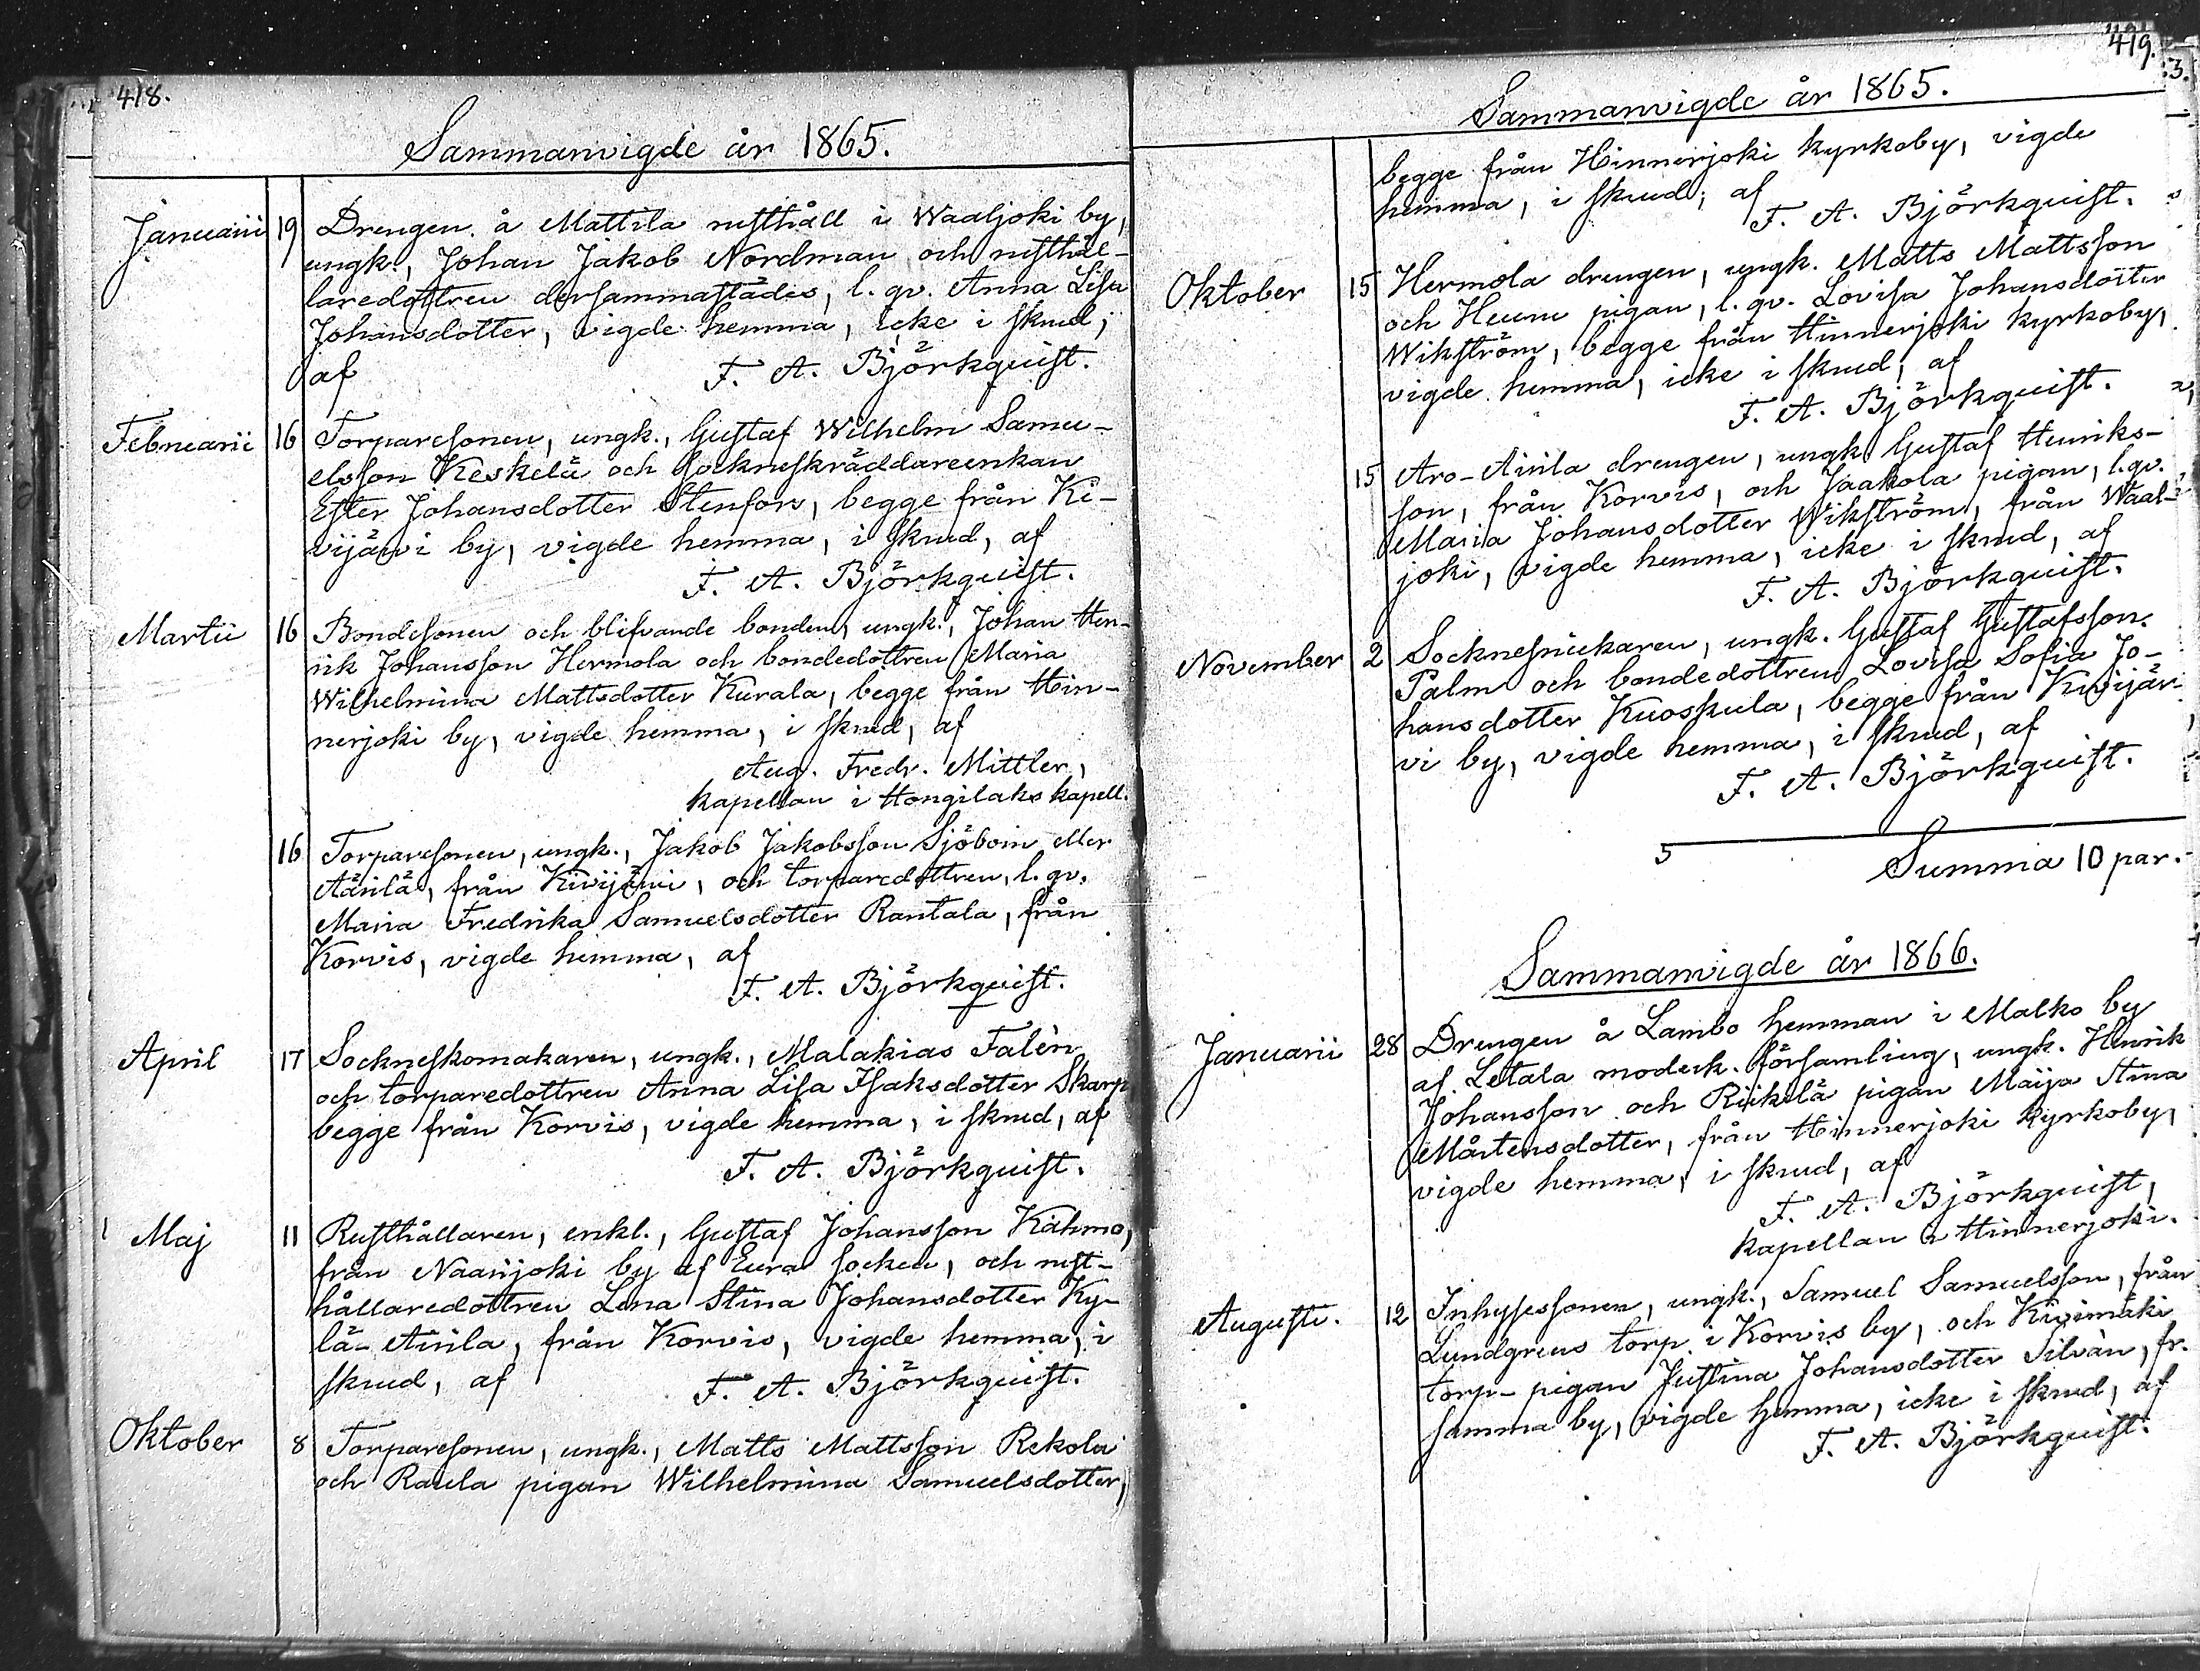 418.
Sammanvigde år 1865.
Januarii 19 Drengen å Mattila rusthåll i Waaljoki by,
ungk., Johan Jakob Nordman och rusthål-
laredottren dersammastädes, l. qv. Anna Lisa
Johansdotter, vigde hemma, icke i skrud,
af F. A. Björkquist.
Februarii 16 Torparesonen, ungk., Gustaf Wilhelm Samu-
elsson Keskelä och sockneskräddareenkan
Ester Johansdotter Stenfors, begge från Ki-
vijärvi by, vigde hemma, i skrud, af
F. A. Björkquist.
Martii 16 Bondesonen och blifvande bonden, ungk., Johan Hen-
rik Johansson Hermola och bondedottren Maria
Wilhelmina Mattsdotter Kurala, begge från Hin-
nerjoki by, vigde hemma, i skrud, af
Aug. Fredr. Mittler,
kapellan i Hongilaks kapell.
16 Torparesonen, ungk., Jakob Jakobsson Sjöbom eller
Äärilä, från Kivijärvi, och torparedottren, l. qv.
Maria Fredrika Samuelsdotter Rantala, från
Korvis, vigde hemma, af
F. A. Björkquist.
April 17 Sockneskomakaren, ungk., Malakias Falèn
och torparedottren Anna Lisa Isaksdotter Skarp
begge från Korvis, vigde hemma, i skrud, af
F. A. Björkquist.
Maj 11 Rusthållaren, enkl., Gustaf Johansson Kähmo,
från Naarjoki by af Eura socken, och rust-
hållaredottren Lena Stina Johansdotter Ky-
lä-Anila, från Korvis, vigde hemma, i
skrud, af F. A. Björkquist.
Oktober 8 Torparesonen, ungk., Matts Mattsson Rekola
och Raula pigan Wilhelmina Samuelsdotter,
419.
3.
Sammanvigde år 1865.
begge från Hinnerjoki kyrkoby, vigde
hemma, i skrud; af
F. A. Björkquist.
Oktober 15 Hermola drengen, ungk. Matts Mattsson
och Heunu pigan, l. qv. Lovisa Johansdotter
Wikström, begge från Hinnerjoki kyrkoby,
vigde hemma, icke i skrud, af
F. A. Björkquist.
15 Aro-Anila drengen, ungk. Gustaf Henriks-
son, från Korvis, och Jaakola pigan, l. qv.
Maria Johansdotter Wikström, från Waal-
joki, vigde hemma, icke i skrud, af
F. A. Björkquist.
November 2 Socknesnickaren, ungk. Gustaf Gustafsson
Palm och bondedottren Lovisa Sofia Jo-
hansdotter Kuoskula, begge från Kivijär-
vi by, vigde hemma, i skrud, af
F. A. Björkquist.
5 Summa 10 par.
Sammanvigde år 1866.
Januarii 28 Drengen å Lambo hemman i Malko by
af Letala moderk. församling, ungk. Henrik
Johansson och Riikilä pigan Maija Stina
Mårtensdotter, från Hinnerjoki kyrkoby,
vigde hemma, i skrud, af
F. A. Björkquist,
kapellan i Hinnerjoki.
Augusti. 12 Inhysessonen, ungk., Samuel Samuelsson, från
Lundgrens torp i Korvis by, och Kivimäki
torp-pigan Justina Johansdotter Silvàn, fr.
samma by, vigde hemma, icke i skrud, af
F. A. Björkquist.